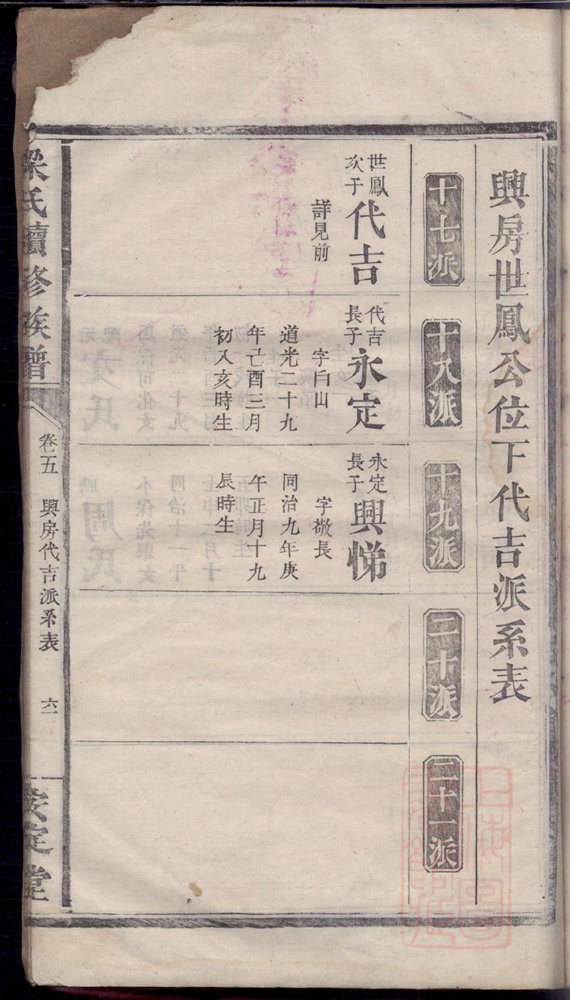 興房世鳳公位下代吉派系表
十七派
十八派
十九派
二十派
二十一派
世鳳
次子
代吉
詳見前
代吉
長子
永定
字向山
道光二十九
年己酉三月
初八亥時生
永定
長子
興悌
字敬長
同治九年庚
午正月十九
辰時生
梁氏續修族譜
卷五
興房代吉派系表
六一
安定堂